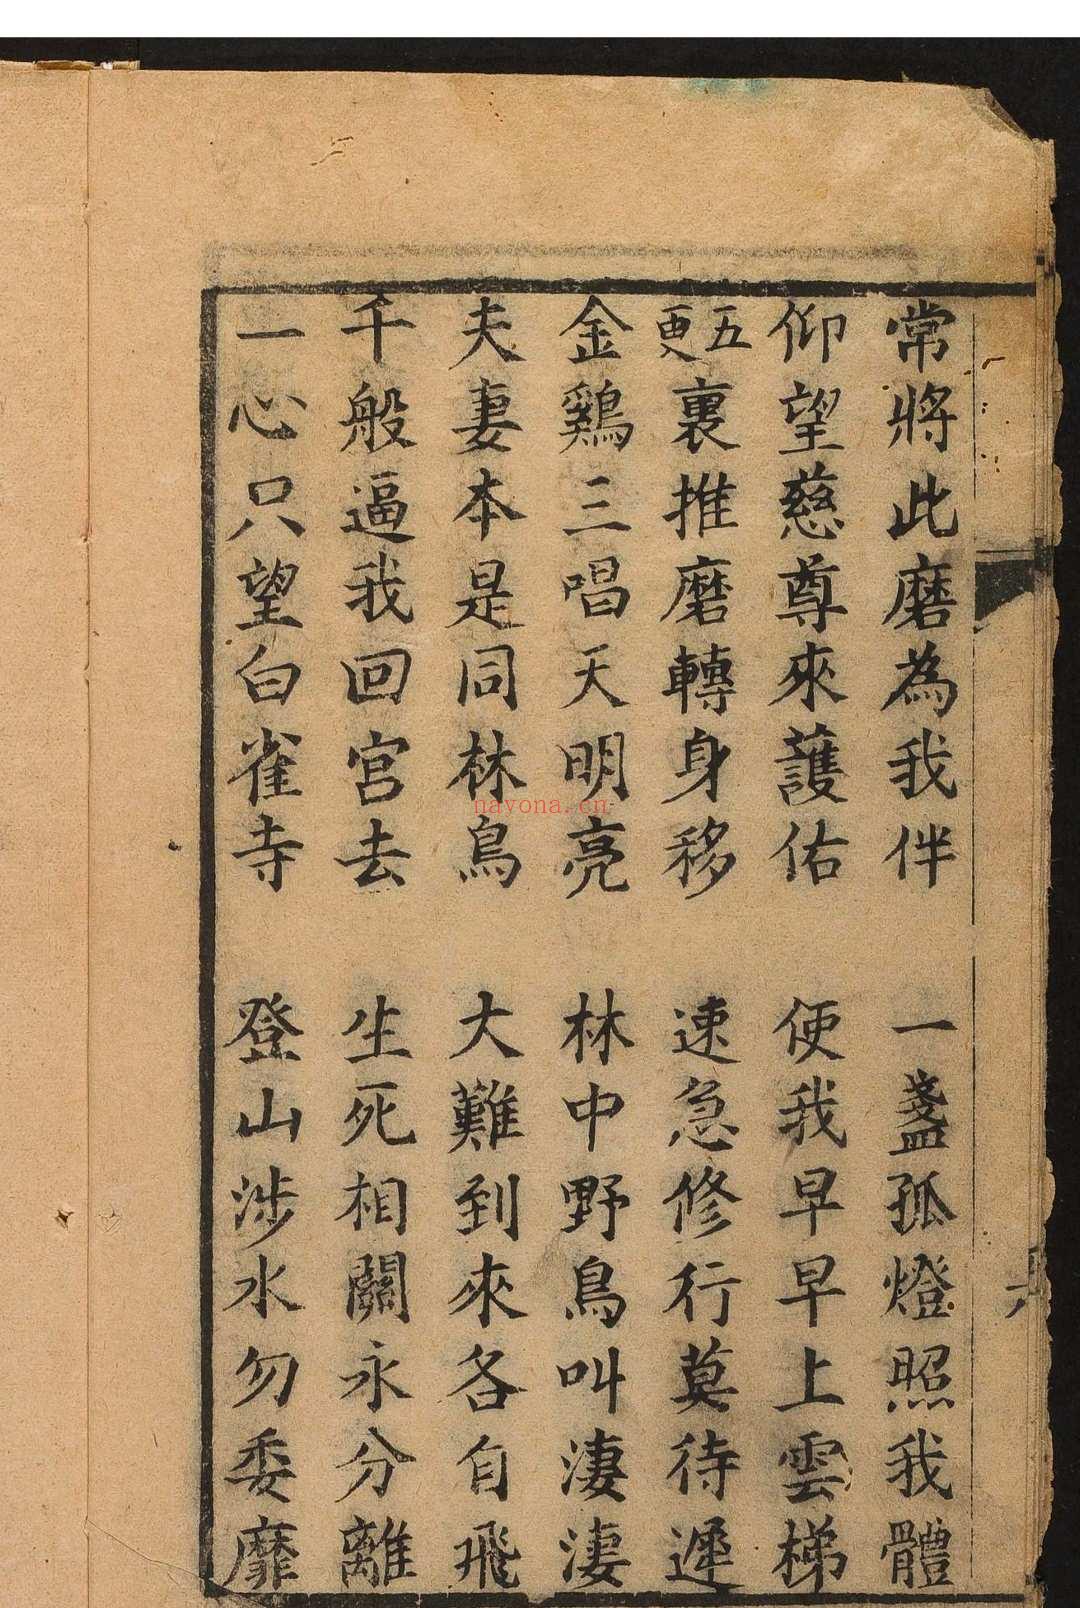 常將此磨為我伴　一盞孤燈照我體
仰望慈尊來護佑　便我早早上雲梯
五更裏推磨轉身移　速急修行莫待遲
金鷄三唱天明亮　林中野鳥叫淒淒
夫妻本是同林鳥　大難到來各自飛
千般逼我回宮去　生死相關永分離
一心只望白雀寺　登山涉水勿委靡
navona.cn